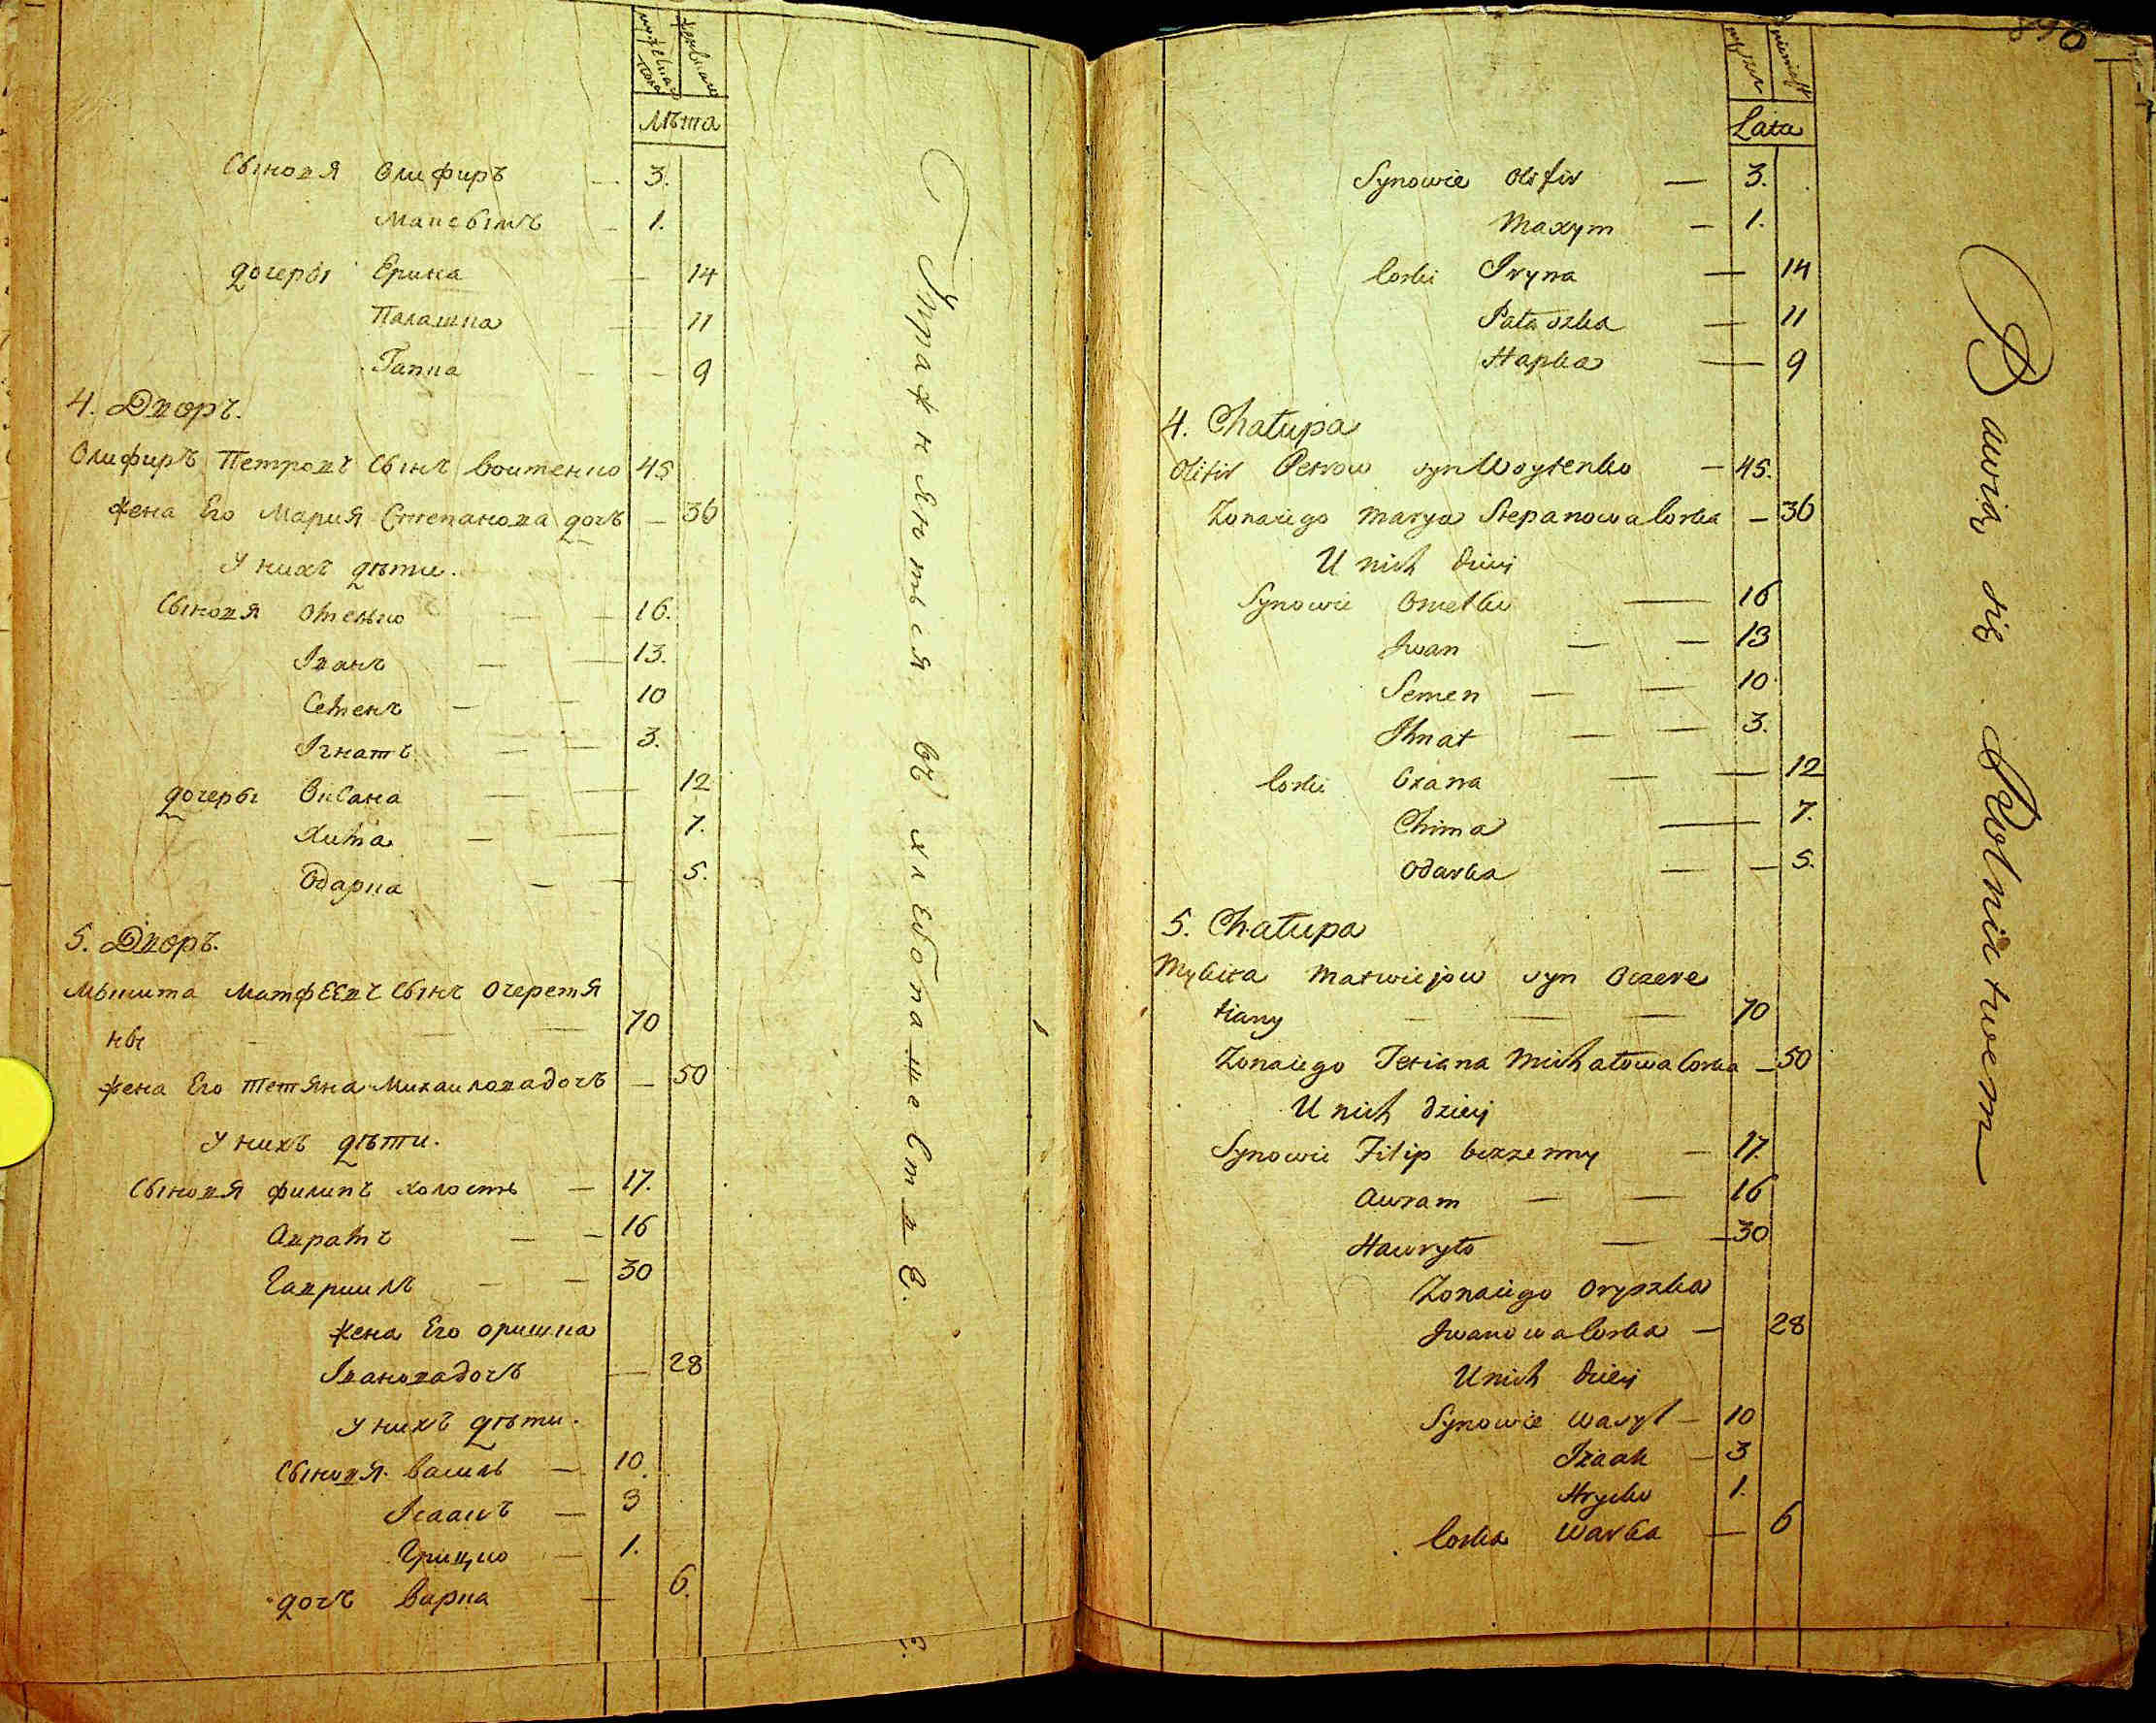 лѣта
Сыновя Олифиръ — 3.
Максымъ — 1.
дочеры Ерина — 14
Палашка — 11
Гапка — 9
4. Дворъ.
Олифиръ Петровъ Сынъ Воитенко 45
жена Его Мария Степанова дочь — 36
У нихъ дѣти.
Сыновя Омелько — 16.
Іванъ — 13.
Семенъ — 10
Ігнатъ — 3.
дочеры Оксана — 12
Хима — 7.
Одарка — 5.
5. Дворъ.
Мыкита Матфеевъ Сынъ Очеретя
ны — 70
жена Его Тетяна Михаиловадочь — 50
У нихъ дѣти.
Сыновя Филипъ холостъ — 17.
Аврамъ — 16
Гавриилъ — 30
жена Его Оришка
Івановадочь — 28
У нихъ дѣти.
Сыновя Василь — 10.
Ісаакъ — 3
Грицко — 1.
дочь Варка — 6.
Упражняються въ хлебопашествѣ.
Lata
Synowie Olifir — 3.
Maxym — 1.
Corki Iryna — 14
Pałaszka — 11
Hapka — 9
4. Chałupa
Olifir Petrow syn Woytenko — 45.
Zona iego Marya Stepanowa Corka — 36
U nich dzieci
Synowie Omelko — 16
Jwan — 13
Semen — 10
Ihnat — 3.
Corki Oxana — 12
Chima — 7.
Odarka — 5.
5. Chałupa
Mykita Matwiejow syn Oczere
tiany — 70
Zona iego Tetiana Michałowa Corka — 50
U nich dzieci
Synowie Filip bezzenny — 17.
Awram — 16
Hawryło — 30
Zona iego Oryszka
Jwanowa Corka — 28
U nich dzieci
Synowie Wasyl — 10
Izaak — 3
Hrycko 1.
Corka Warka — 6
Bawią się Rolnictwem